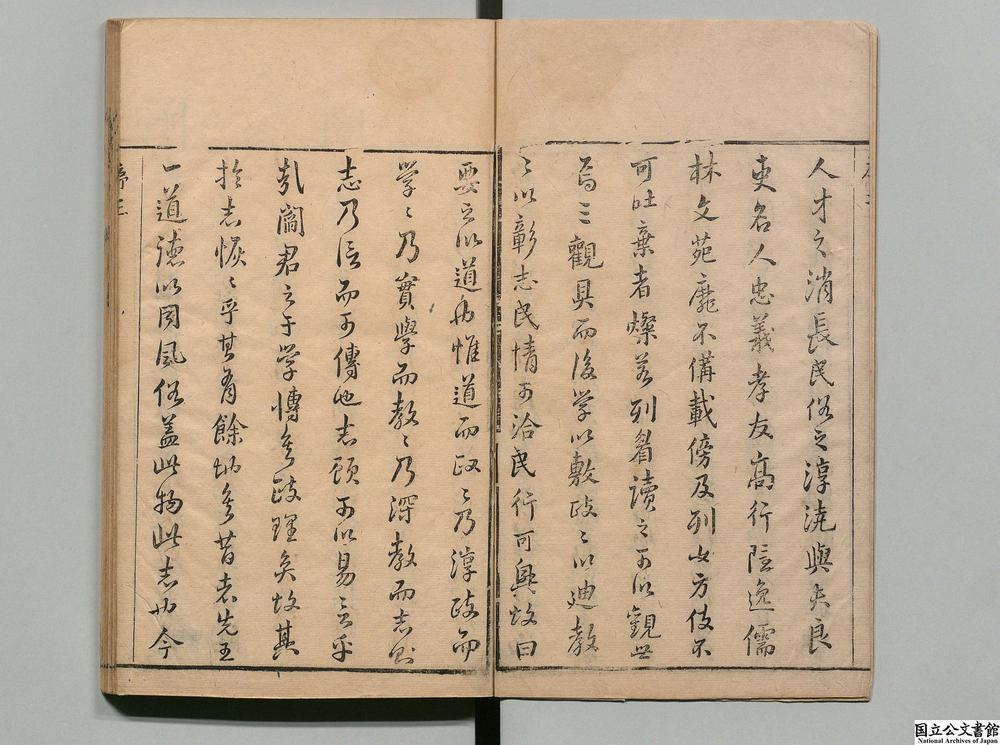 人才之消長民俗之淳澆與夫良
吏名人忠義孝友高行隱逸儒
林文苑靡不備載傍及列女方伎不
可吐棄者燦若列眉讀之可以觀矣
三觀具而後学以敷政〻以迪教
〻以彰志民情可洽民行可興故曰
要之以道也惟道而政〻乃淳政而
学〻乃實學而教〻乃深教而志
志乃信而可傳也志顧可以易言乎
閻君之于学博矣政理矣故其
於志恢〻乎其有餘也矣昔者先王
一道德以同風俗蓋此物此志也今
序三
国立公文書館
National Archives of Japan